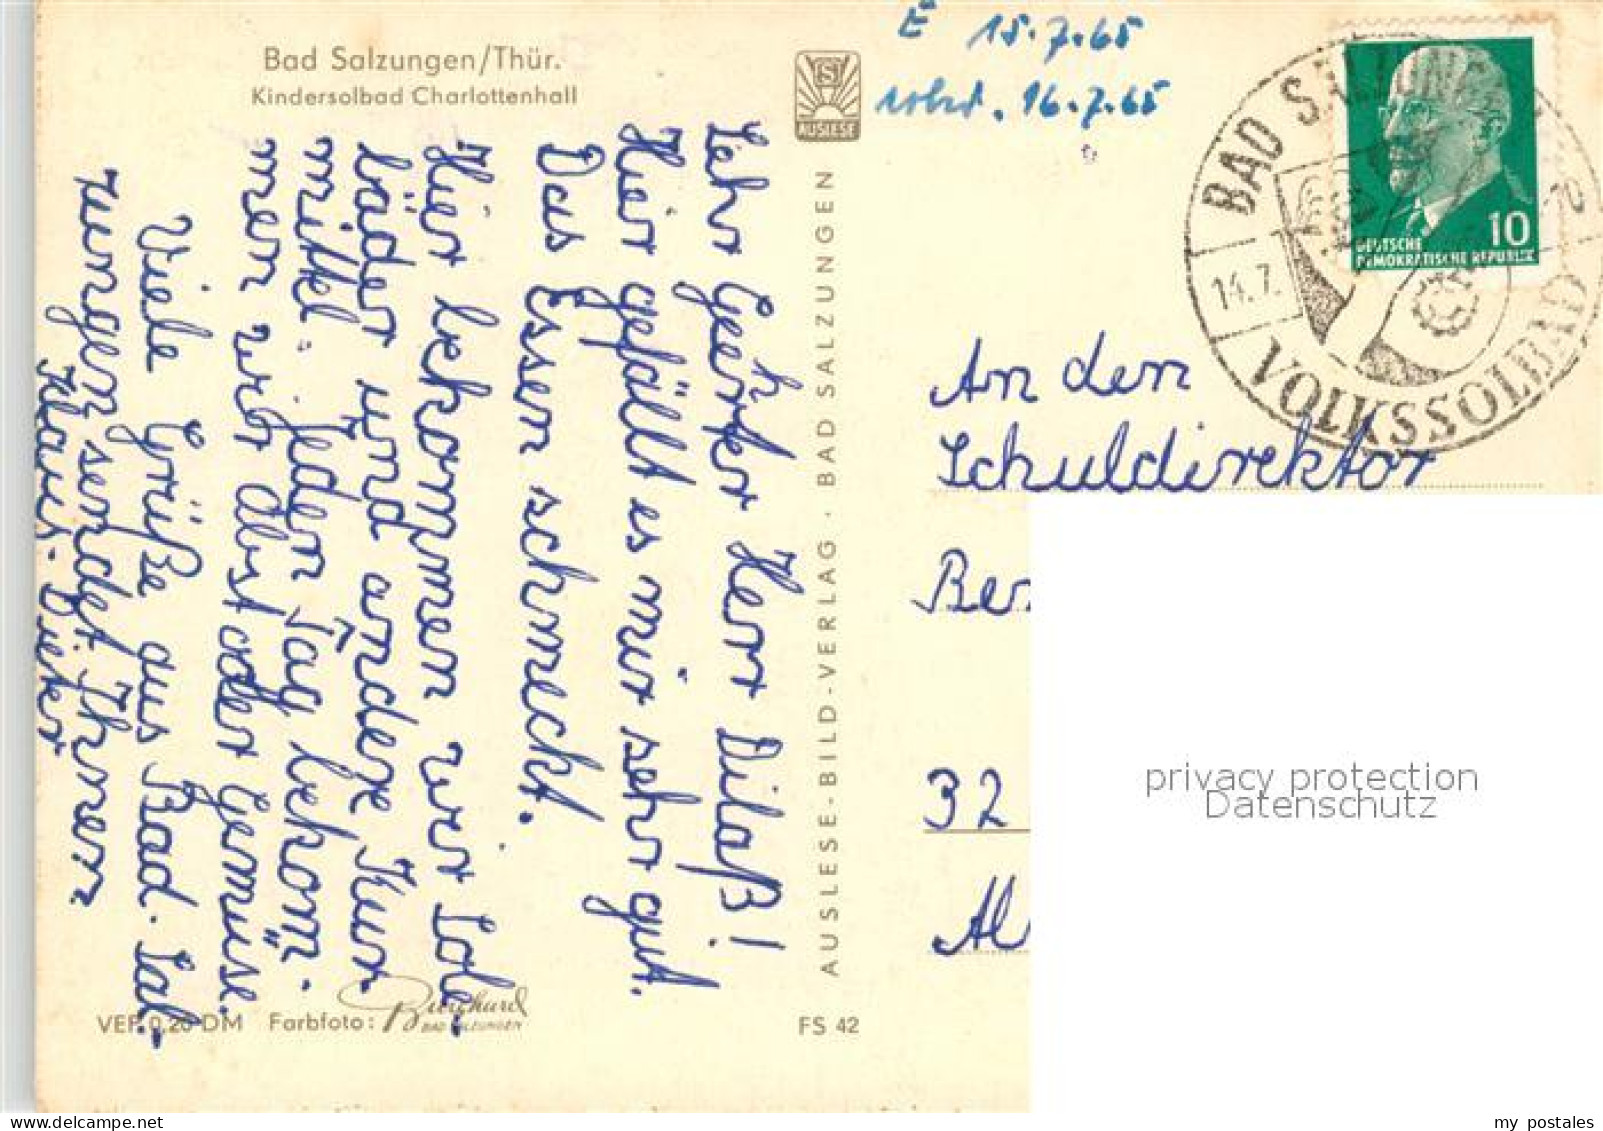 Bad Salzungen/Thür.
Kindersolbad Charlottenhall
AUSLESE
E 15.7.65
16.7.65
BAD SALZUNGEN
14.7.
VOLKSSOLBAD
10
DEUTSCHE
DEMOKRATISCHE REPUBLIK
Sehr Geehrter Herr Dilaß!
Hier gefällt es mir sehr gut.
Das Essen schmeckt.
Hier bekommen wir Sole-
bäder und andere Kur-
mittel. Jeden Tag bekom-
men wir Obst oder Gemüse.
Viele Grüße aus Bad-Sal-
zungen sendet Ihnen
Klaus-Dieter
AUSLESE-BILD-VERLAG · BAD SALZUNGEN
An den
Schuldirektor
Ber
32
Al
privacy protection
Datenschutz
VEP 0,20 DM Farbfoto: Burchard
BAD SALZUNGEN
FS 42
my postales